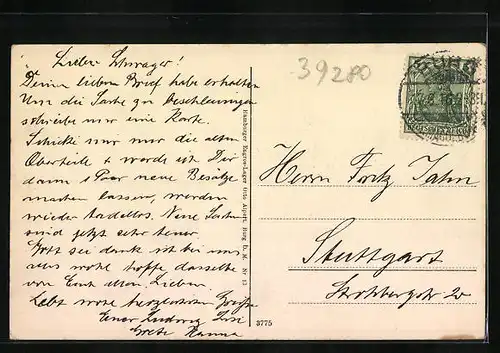 Lieber Schwager!
Deinen lieben Brief habe erhalten
Um die Sache zu beschleunigen
schreibe nur eine Karte.
Schicke nur nur die alten
Oberteile & werde ich Dir
dann 1 Paar neue Besätze
machen lassen, werden
wieder tadellos. Neue Sachen
sind jetzt sehr teuer.
Gott sei dank ist bei uns
alles wohl hoffe dasselbe
von Euch allen Lieben.
Lebt wohl herzlichsten Grüße
Euer Ludwig
Grete Hanna
Hamburger Engros-Lager Otto Alpert, Burg b. M. Nr 12
3775
39280
BURG
Herrn Fritz Jahn
Stuttgart